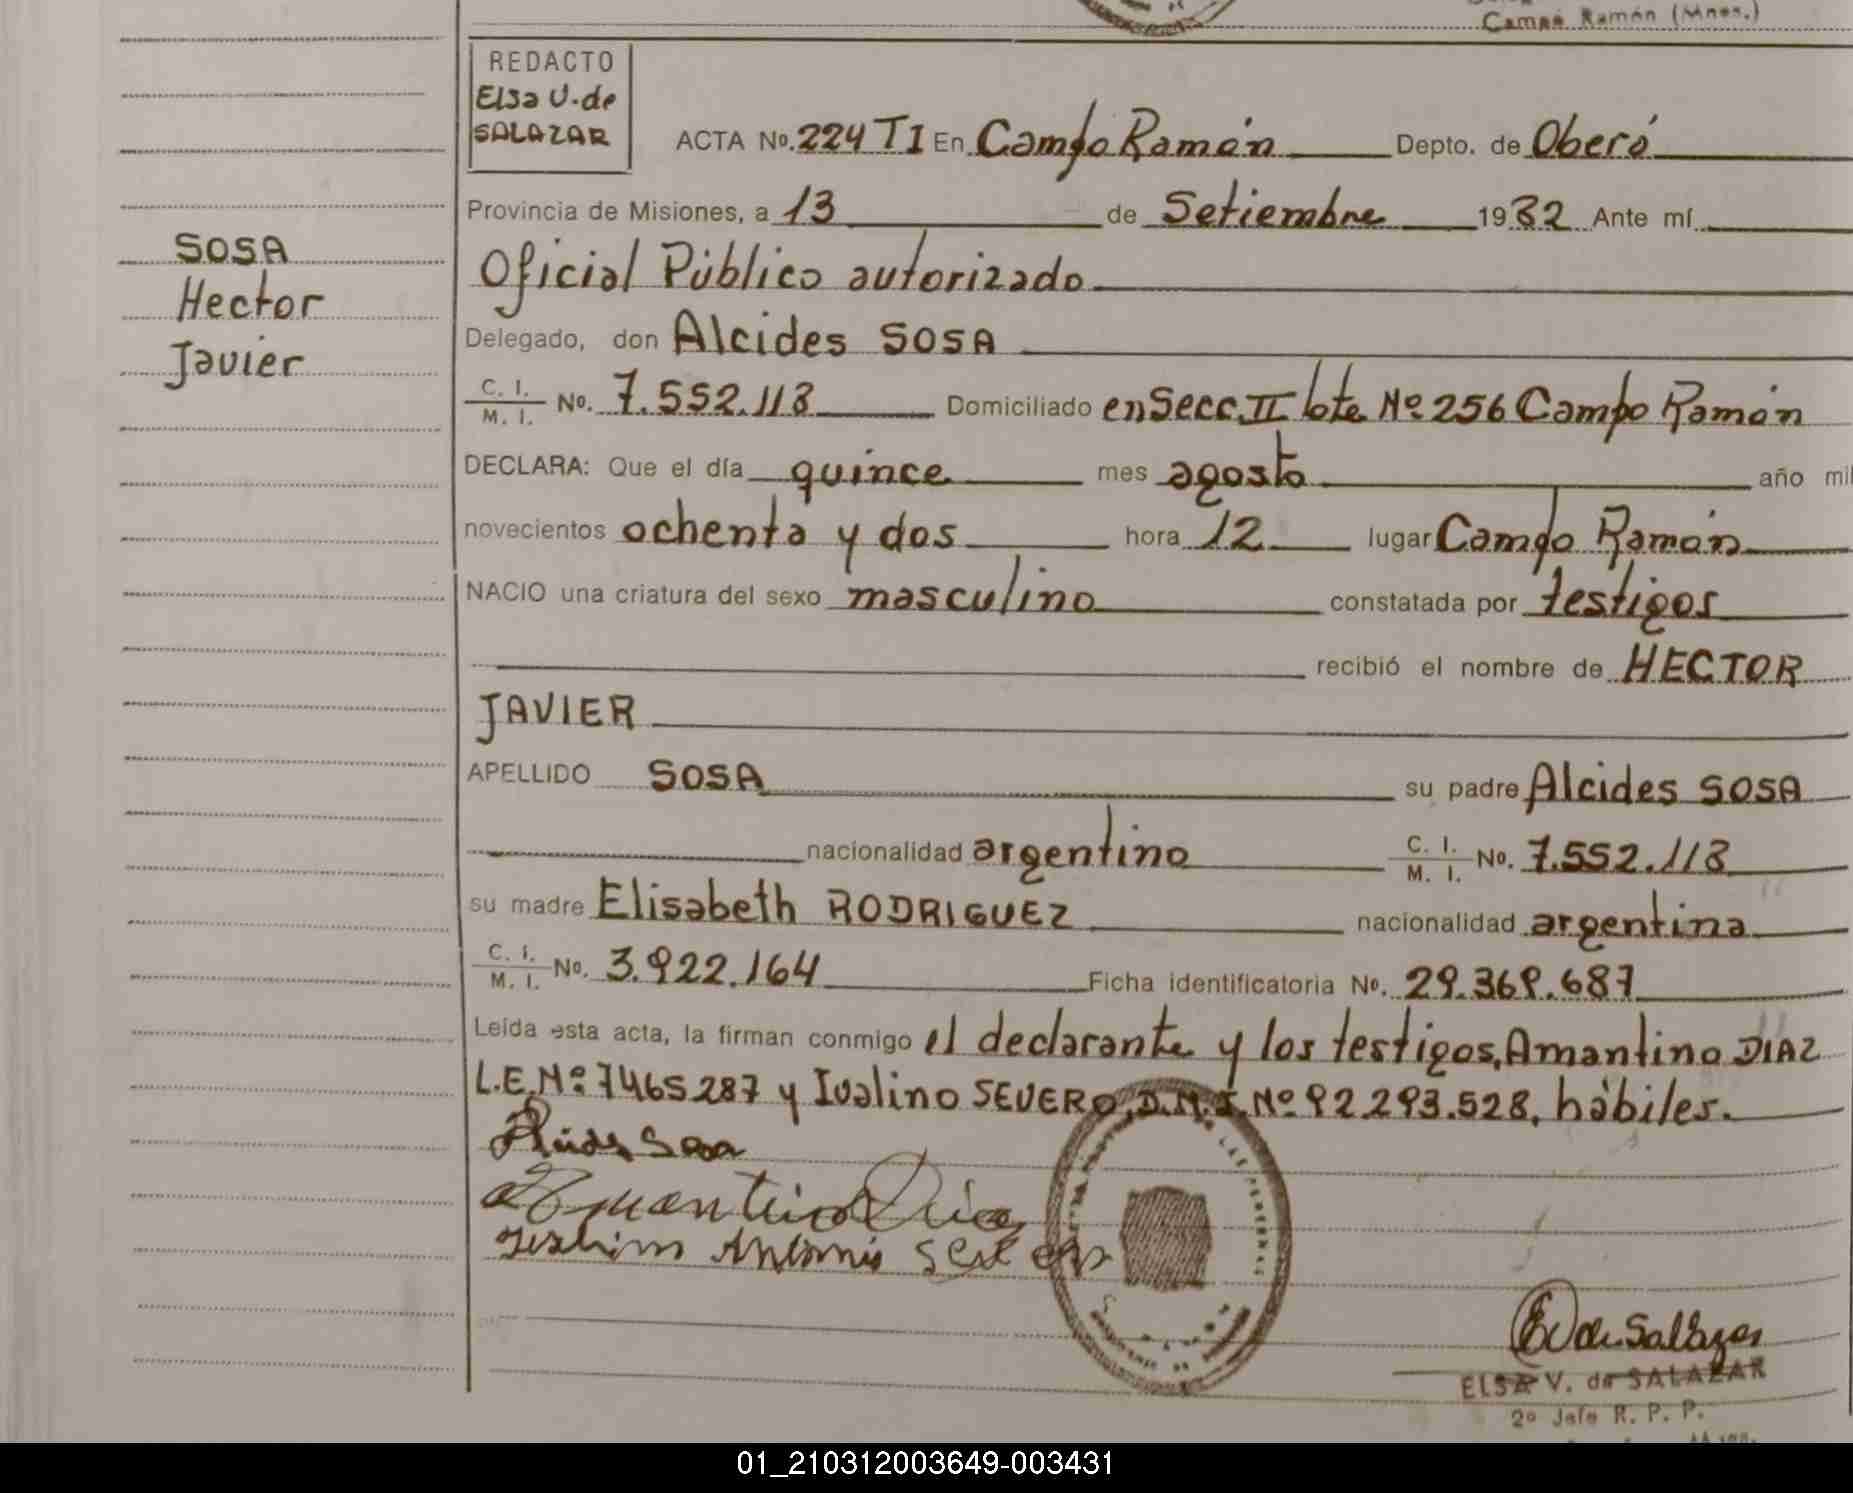 Campo Ramón (Mnes.)
REDACTO
Elsa V. de
SALAZAR
ACTA No. 224 TI En Campo Ramón Depto. de Oberá
Provincia de Misiones, a 13 de Setiembre 1982 Ante mí
SOSA
Hector
Javier
Oficial Público autorizado
Delegado, don Alcides SOSA
C. I. / M. I. No. 7.552.118 Domiciliado en Secc. II lote Nº 256 Campo Ramón
DECLARA: Que el día quince mes agosto año mil
novecientos ochenta y dos hora 12 lugar Campo Ramón
NACIO una criatura del sexo masculino constatada por testigos
recibió el nombre de HECTOR
JAVIER
APELLIDO SOSA su padre Alcides SOSA
nacionalidad argentino C. I. / M. I. No. 7.552.118
su madre Elisabeth RODRIGUEZ nacionalidad argentina
C. I. / M. I. No. 3.922.164 Ficha identificatoria No. 29.369.687
Leída esta acta, la firman conmigo el declarante y los testigos, Amantino DIAZ
L.E. Nº 7465287 y Ivalino SEVERO, D.N.I. Nº 92.293.528, hábiles.
Alcides Sosa
Amantino Díaz
Antonio
E V de Salazar
ELSA V. de SALAZAR
2º Jefe R. P. P.
01_210312003649-003431